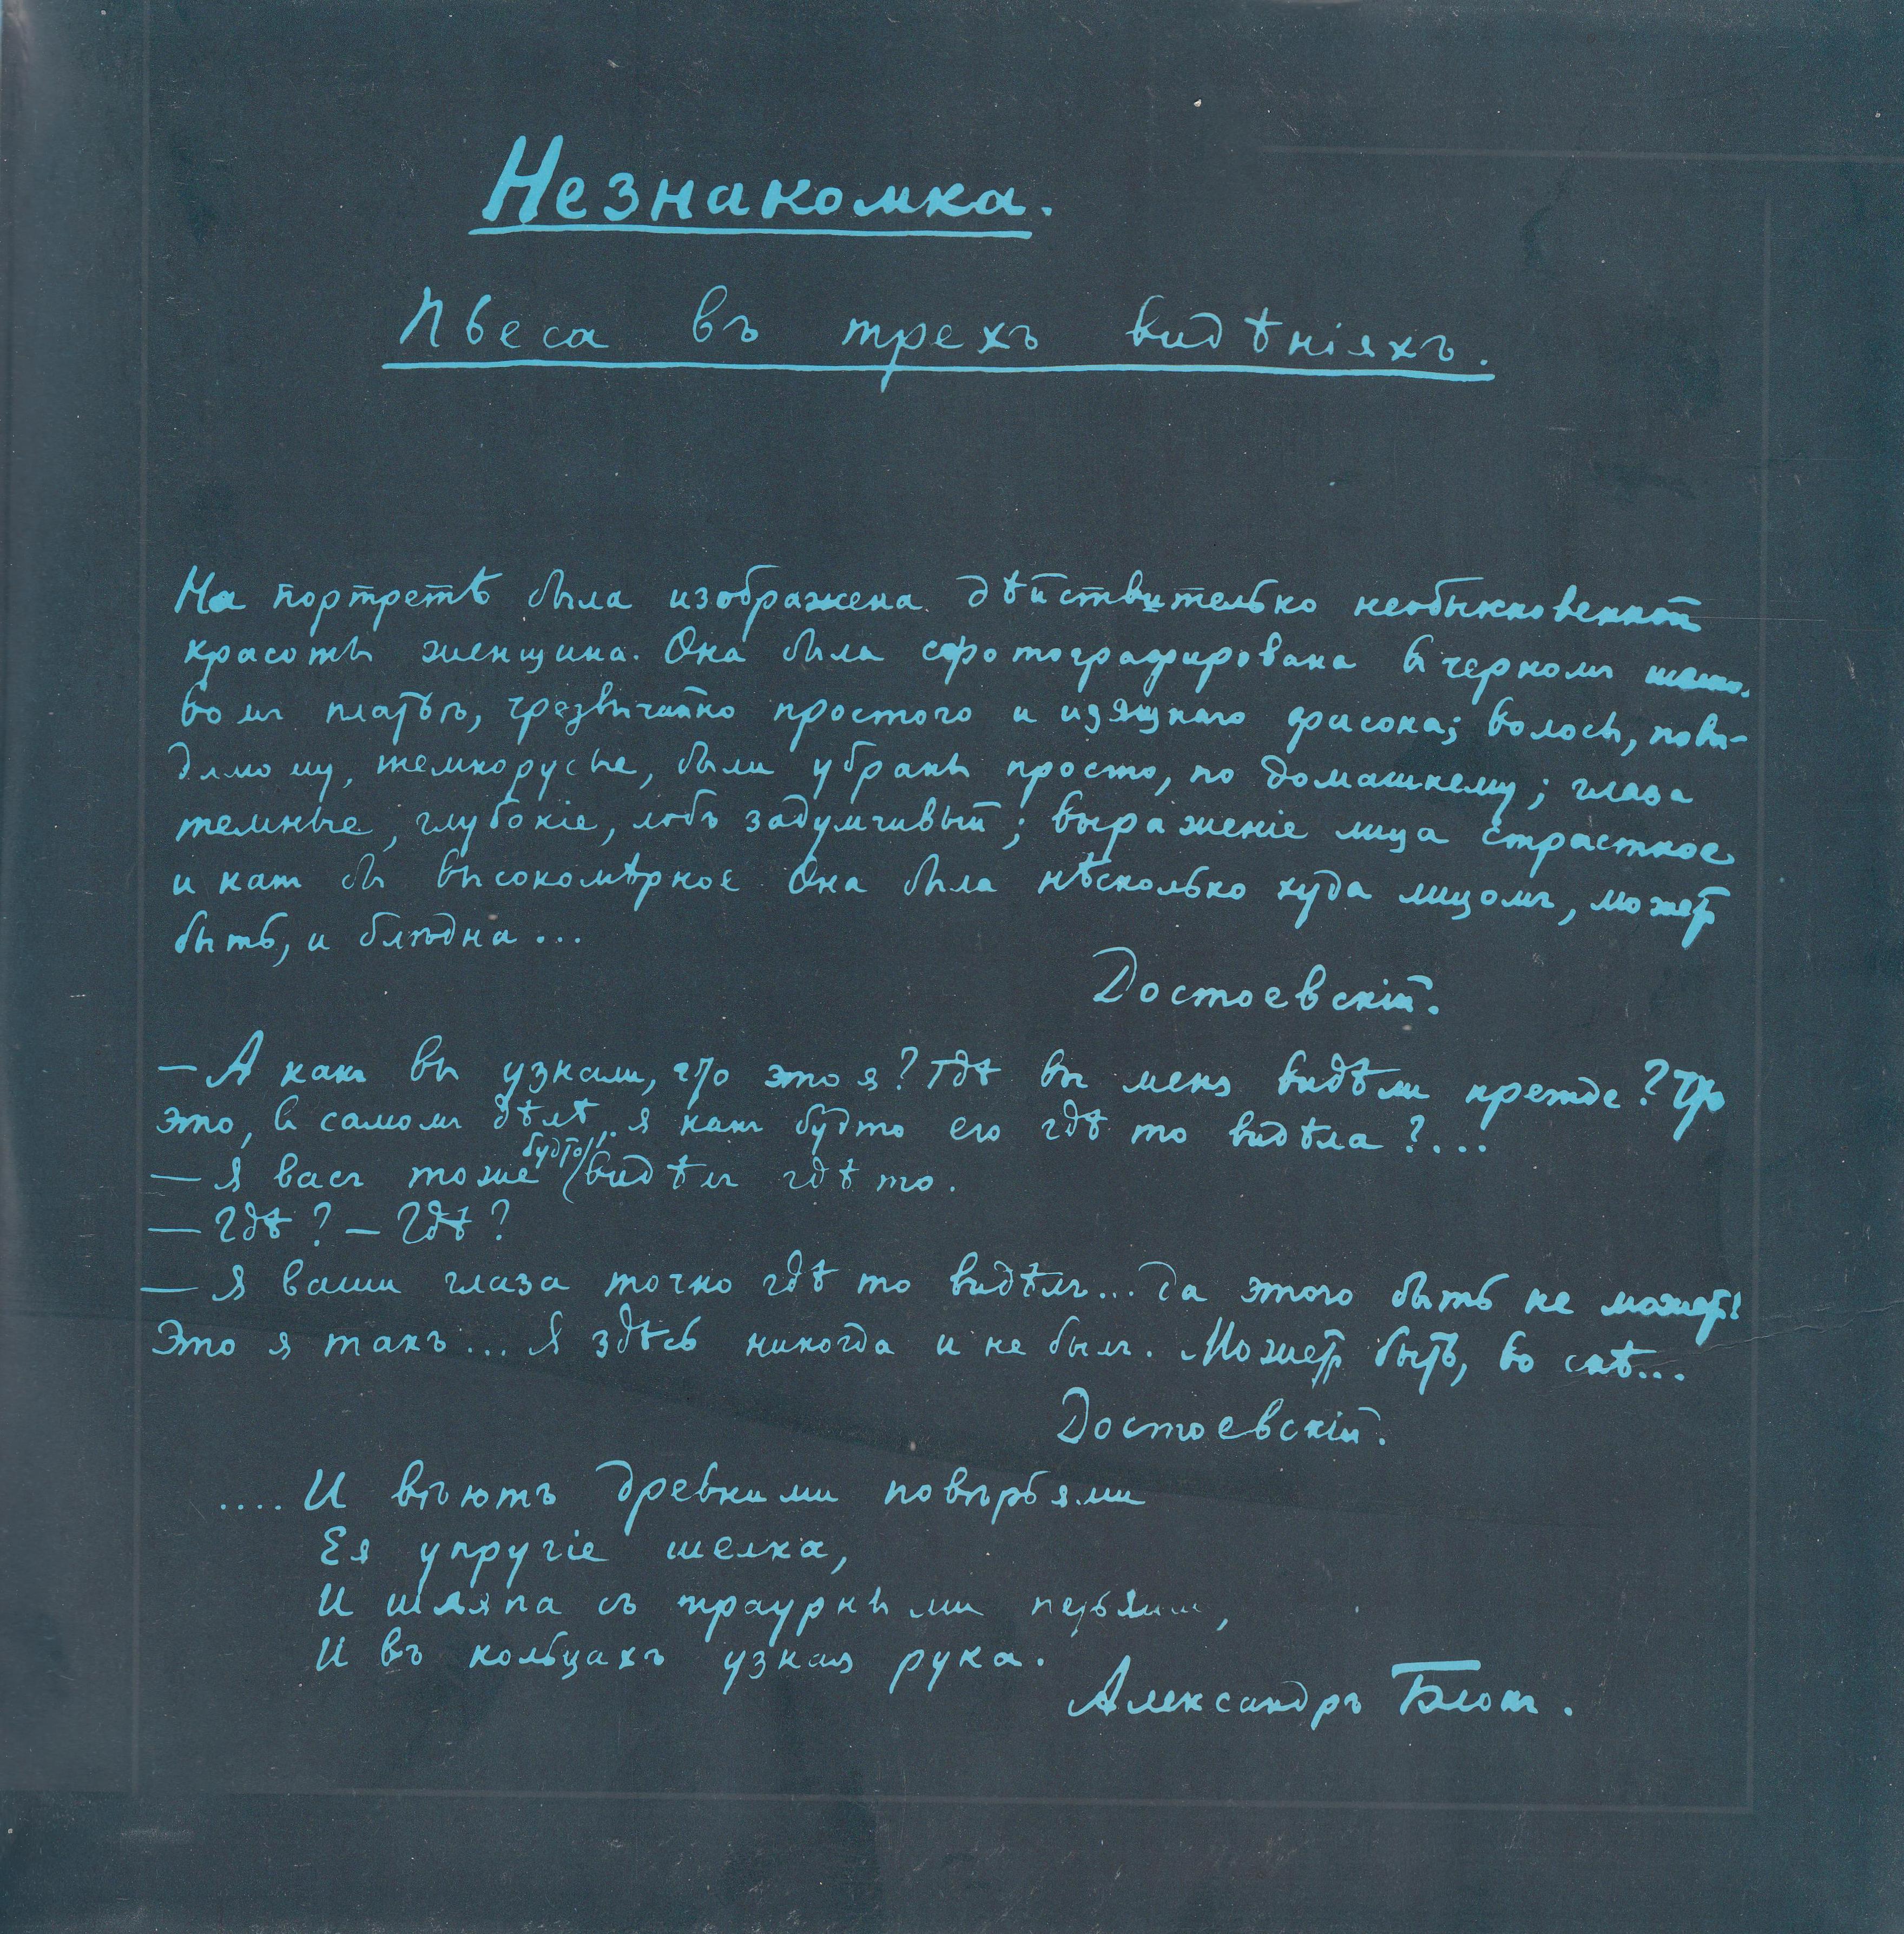 Незнакомка.
Пьеса въ трехъ видѣніяхъ.
На портретѣ была изображена дѣйствительно необыкновенной
красоты женщина. Она была сфотографирована въ черномъ шелко-
вомъ платьѣ, чрезвычайно простого и изящнаго фасона; волосы, пови-
димому, темнорусые, были убраны просто, по домашнему; глаза
темные, глубокіе, лобъ задумчивый; выраженіе лица страстное
и какъ бы высокомѣрное Она была нѣсколько худа лицомъ, можетъ
быть, и блѣдна...
Достоевскій.
— А какъ вы узнали, что это я? Гдѣ вы меня видѣли прежде? Что
это, въ самомъ дѣлѣ, я какъ будто его гдѣ то видѣла?...
— Я васъ тоже будто видѣлъ гдѣ то.
— Гдѣ? — Гдѣ?
— Я ваши глаза точно гдѣ то видѣлъ... да этого быть не можетъ!
Это я такъ... Я здѣсь никогда и не былъ. Можетъ быть, во снѣ...
Достоевскій.
.... И вѣютъ древними повѣрьями
Ея упругіе шелка,
И шляпа съ траурными перьями,
И въ кольцахъ узкая рука.
Александръ Блокъ.